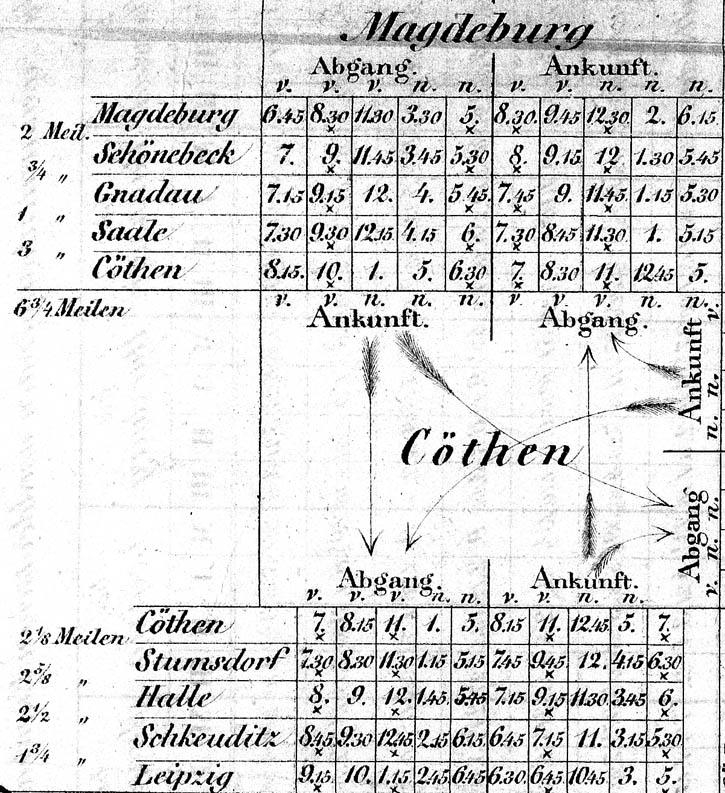 Magdeburg
Abgang. Ankunft.
v. v. v. n. n. v. v. n. n. n.
Magdeburg 6.45 8.30 11.30 3.30 5. 8.30. 9.45 12.30. 2. 6.15.
2 Meil.
Schönebeck 7. 9. 11.45 3.45 5.30 8. 9.15 12 1.30 5.45
3/4 "
Gnadau 7.15 9.15 12. 4. 5.45. 7.45 9. 11.45. 1.15 5.30
1 "
Saale 7.30 9.30 12.15 4.15 6. 7.30 8.45 11.30. 1. 5.15
3 "
Cöthen 8.15. 10. 1. 5. 6.30 7. 8.30 11. 12.45 5.
v. v. n. n. n. v v. v. n. n.
6 3/4 Meilen
Ankunft. Abgang.
Ankunft
v. n. n.
Cöthen
Abgang
v. n. n.
Abgang. Ankunft.
v. v. v. n. n. v. v. n. n.
Cöthen 7. 8.15 11. 1. 5. 8.15 11. 12.45. 5. 7.
2 1/8 Meilen
Stumsdorf 7.30 8.30 11.30 1.15 5.15 7.45 9.45 12. 4.15 6.30
2 5/8 "
Halle 8. 9. 12. 1.45. 5.45 7.15 9.15 11.30 3.45 6.
2 1/2 "
Schkeuditz 8.45 9.30 12.45 2.15 6.15. 6.45 7.15 11. 3.15 5.30
1 3/4 "
Leipzig 9.15 10. 1.15 2.45 6.45 6.30 6.45 10.45 3. 5.